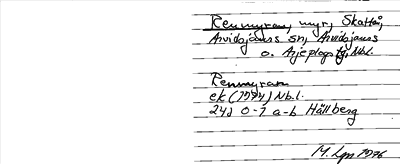 Renmyran, myr, Skattåi,
Arvidsjaurs sn, Arvidsjaurs
o. Arjeplogs tg, Nbl.
Renmyran
ek (1974) Nb.l.
24J 0-1 a-b Hällberg
M. Lgn 1976